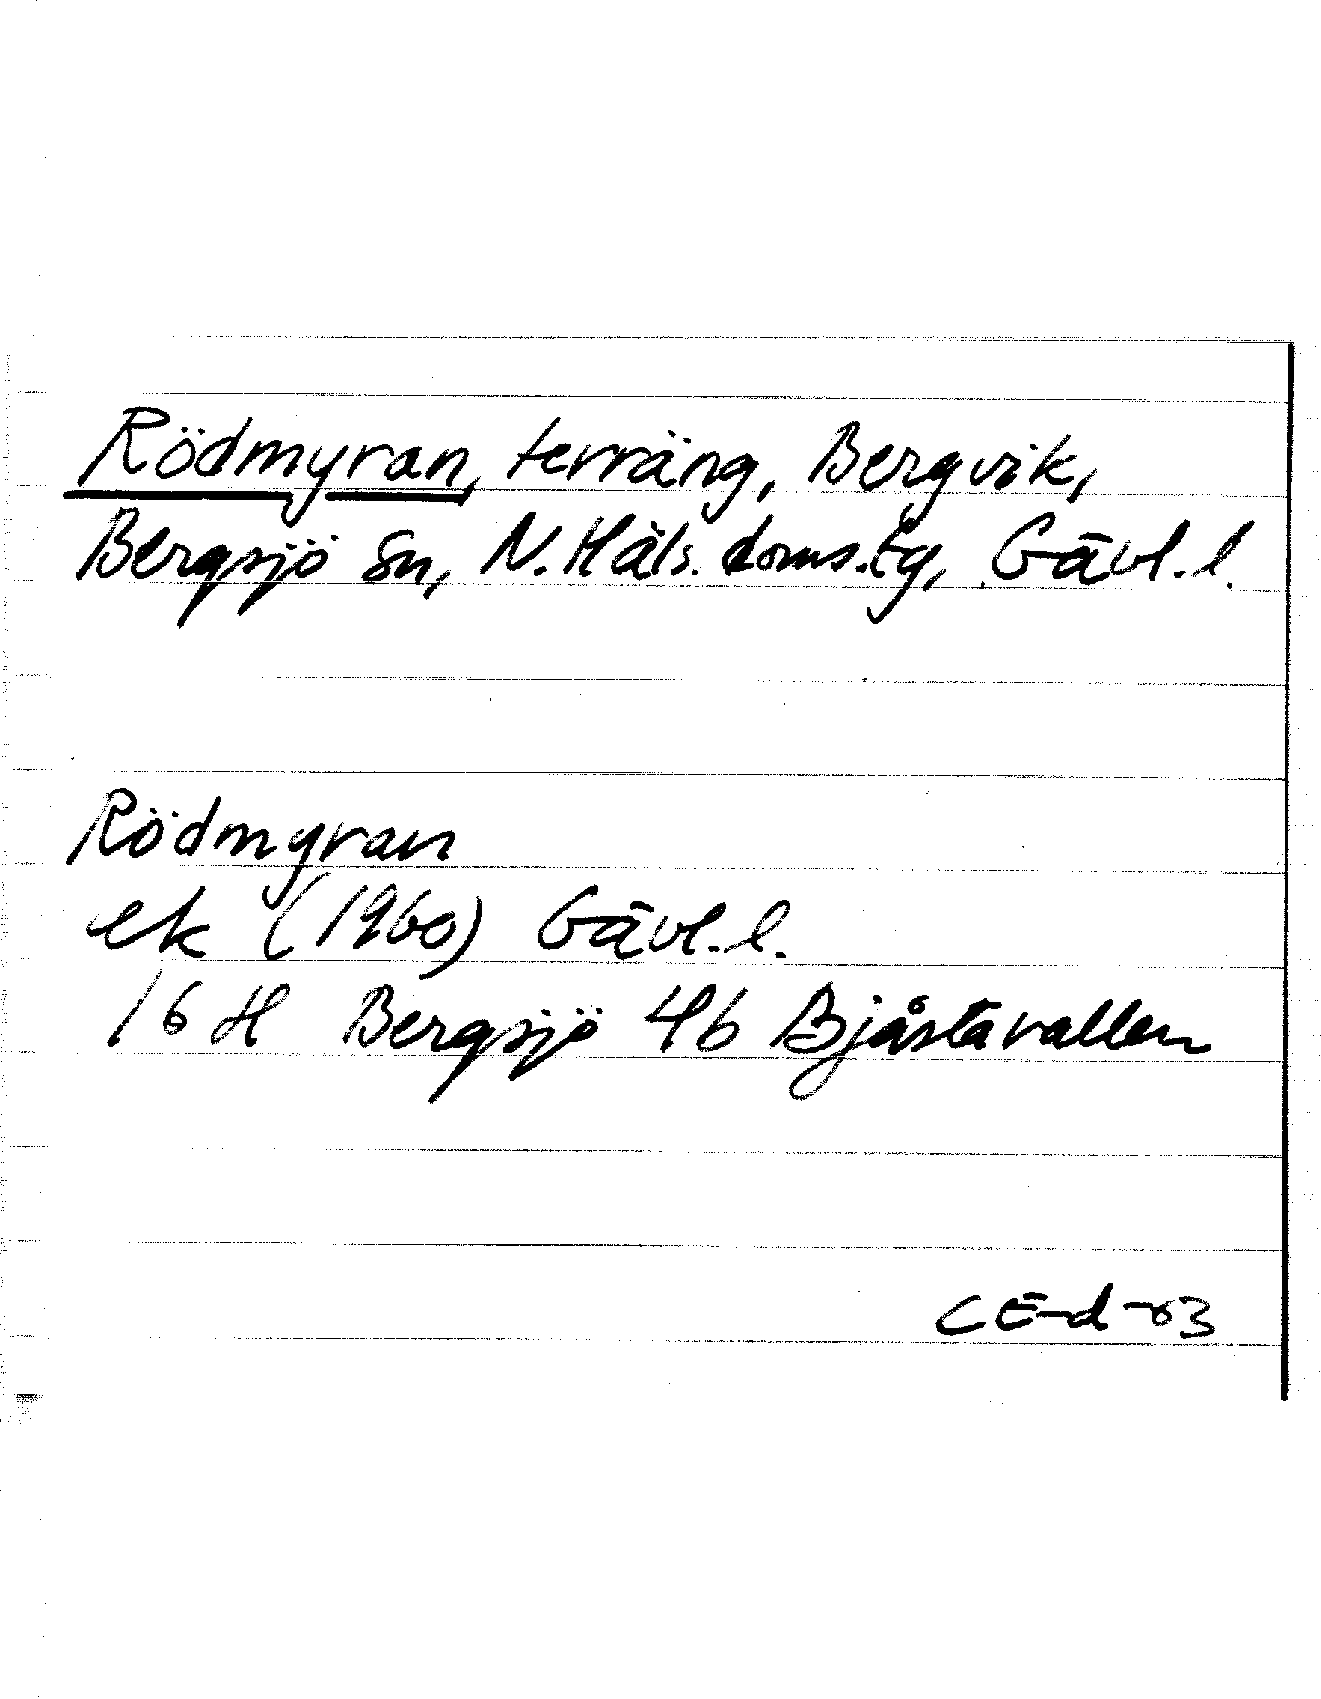 Rödmyran, terräng, Bergvik,
Bergsjö sn, N. Häls. doms.tg, Gävl. l.
Rödmyran
ek (1960) Gävl. l.
16 H Bergsjö 4b Bjåstavallen
CE-d-03